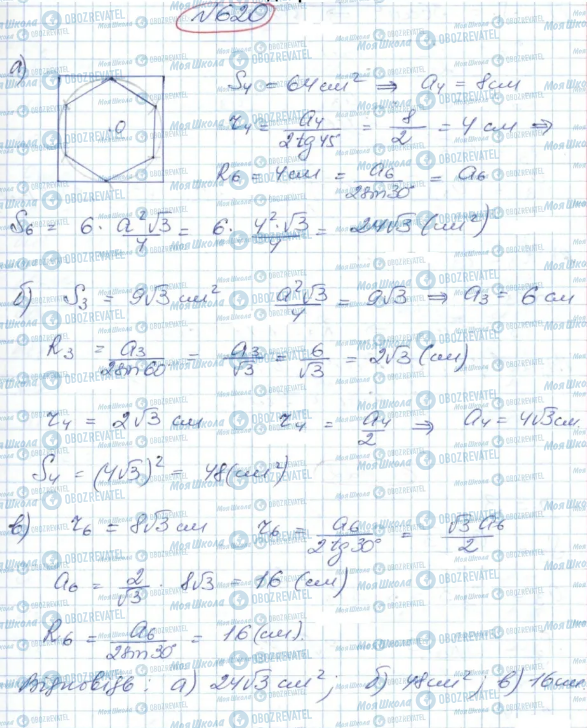 №620
а)
S₄ = 64 см² ⇒ a₄ = 8 см
r₄ = a₄/(2tg45) = 8/2 = 4 см ⇒
R₆ = 4 см = a₆/(2sin30°) = a₆
O
S₆ = 6 · a²√3/4 = 6 · 4²·√3/4 = 24√3 (см²)
б) S₃ = 9√3 см² a²√3/4 = 9√3 ⇒ a₃ = 6 см
R₃ = a₃/(2sin60°) = a₃/√3 = 6/√3 = 2√3 (см)
r₄ = 2√3 см r₄ = a₄/2 ⇒ a₄ = 4√3 см
S₄ = (4√3)² = 48 (см²)
в) r₆ = 8√3 см r₆ = a₆/(2tg30°) = √3 a₆/2
a₆ = 2/√3 · 8√3 = 16 (см)
R₆ = a₆/(2sin30°) = 16 (см).
Відповідь: а) 24√3 см²; б) 48 см²; в) 16 см
Моя Школа OBOZREVATEL